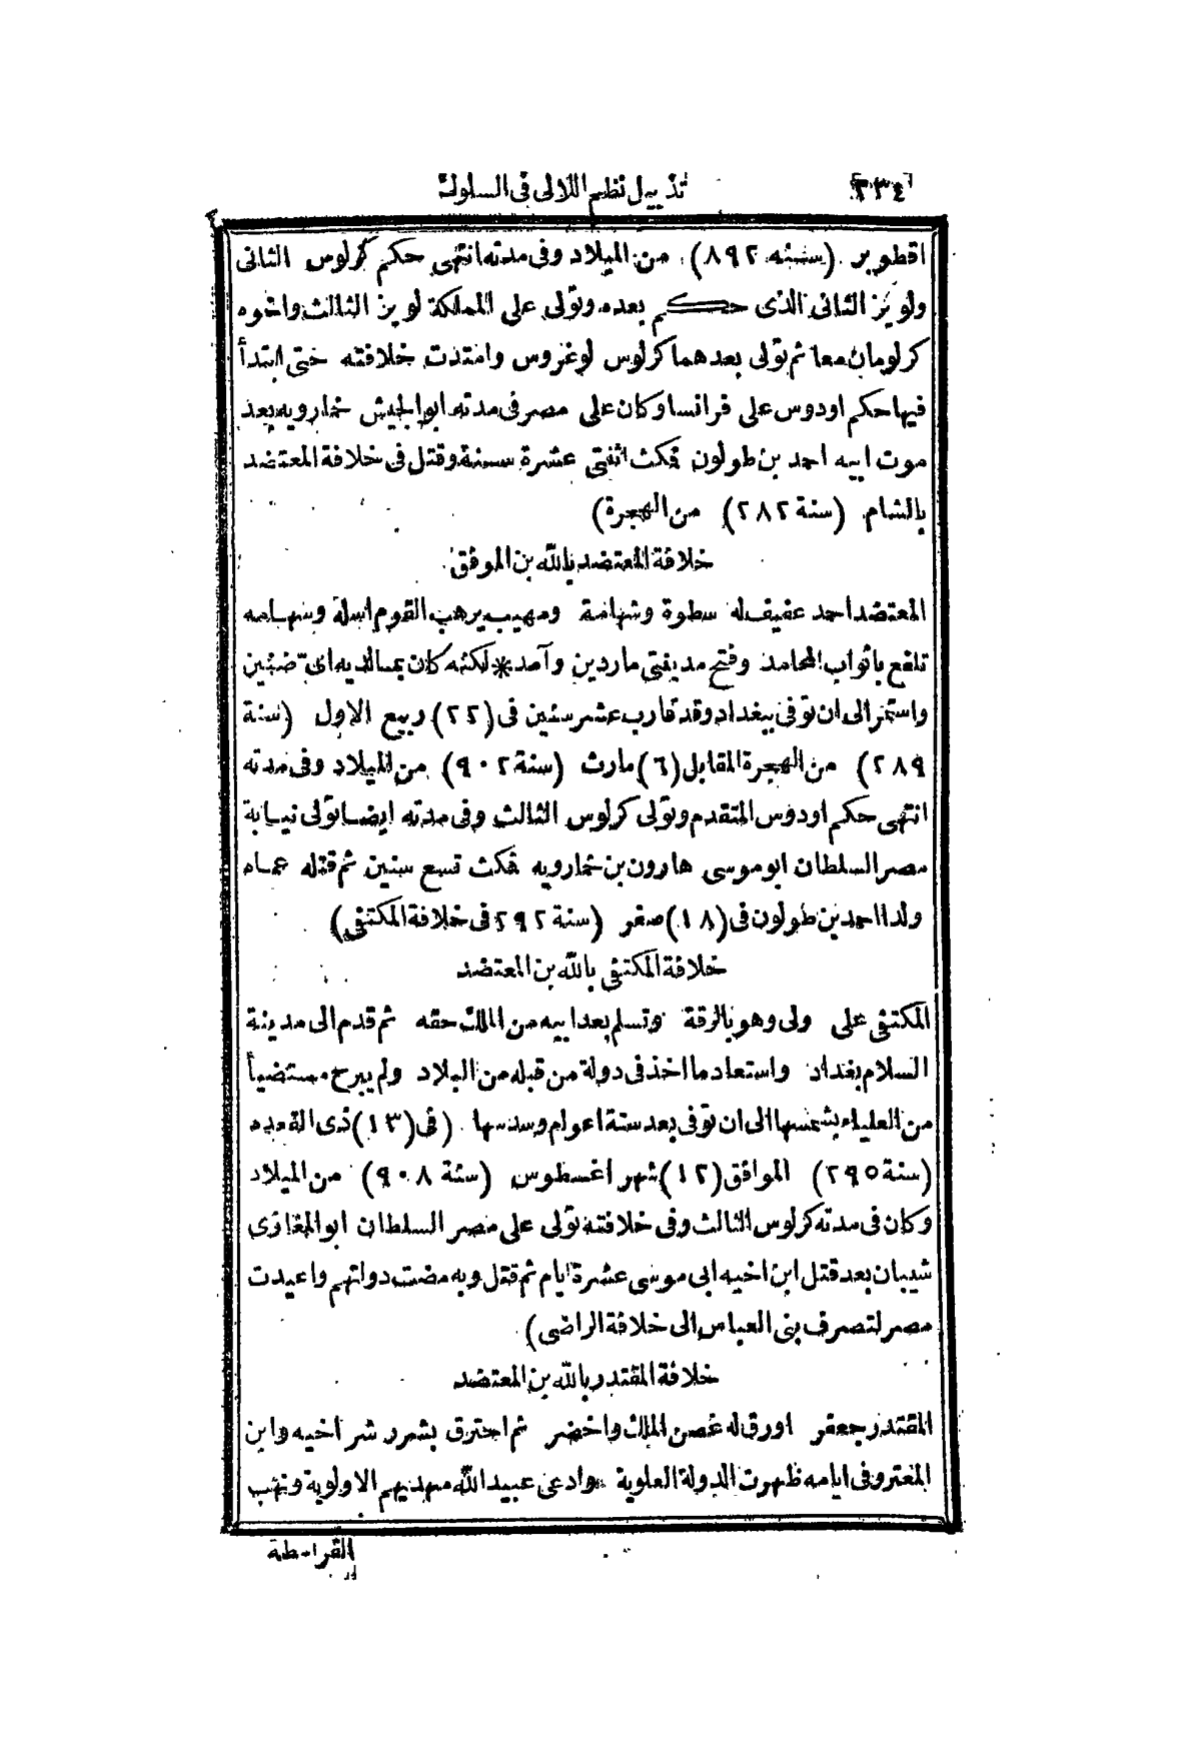 [٢٣٤] تذييل نظم اللالى فى السلوك
اقطوبر (سنة ٨٩٢) من الميلاد وفى مدته انتهى حكم كرلوس الثانى
ولويز الثانى الذى حكم بعده وتولى على المملكة لويز الثالث واخوه
كرلومان معا ثم تولى بعدهما كرلوس لوغروس وامتدت خلافته حتى ابتدأ
فيها حكم اودوس على فرانسا وكان على مصر فى مدته ابو الجيش خمارويه بعد
موت ابيه احمد بن طولون فمكث اثنتى عشرة سنة وقتل فى خلافة المعتضد
بالشام (سنة ٢٨٢) من الهجرة)
خلافة المعتضد بالله بن الموفق
المعتضد احمد عفيف له سطوة وشهامة ومهيب يرهب القوم اسله وسهامه
تلفع باثواب المحامد وفتح مدينتى ماردين وآمد * لكنه كان بما لديه اى ضنين
واستمر الى ان توفى ببغداد وقد قارب عشر سنين فى (٢٢) ربيع الاول (سنة
٢٨٩) من الهجرة المقابل (٦) مارث (سنة ٩٠٢) من الميلاد وفى مدته
انتهى حكم اودوس المتقدم وتولى كرلوس الثالث وفى مدته ايضا تولى نيابة
مصر السلطان ابو موسى هارون بن خمارويه فمكث تسع سنين ثم قتله عماه
ولدا احمد بن طولون فى (١٨) صفر (سنة ٢٩٢ فى خلافة المكتفى)
خلافة المكتفى بالله بن المعتضد
المكتفى على ولى وهو بالرقة وتسلم بعد ابيه من الملك حقه ثم قدم الى مدينة
السلام بغداد واستعاد ما اخذ فى دولة من قبله من البلاد ولم يبرح مستضيأ
من العلياء بشمسها الى ان توفى بعد ستة اعوام وسدسها (فى (١٣) ذى القعده
(سنة ٢٩٥) الموافق (١٢) شهر اغسطوس (سنة ٩٠٨) من الميلاد
وكان فى مدته كرلوس الثالث وفى خلافته تولى على مصر السلطان ابو المغازى
شيبان بعد قتل ابن اخيه ابى موسى عشرة ايام ثم قتل وبه مضت دولتهم واعيدت
مصر لتصرف بنى العباس الى خلافة الراضى)
خلافة المقتدر بالله بن المعتضد
المقتدر جعفر اورق له غصن الملك واخضر ثم احترق بشرر شر اخيه وابن
المعتز وفى ايامه ظهرت الدولة العلوية وادعى عبيد الله مهديهم الاولوية ونهب
القرامطة